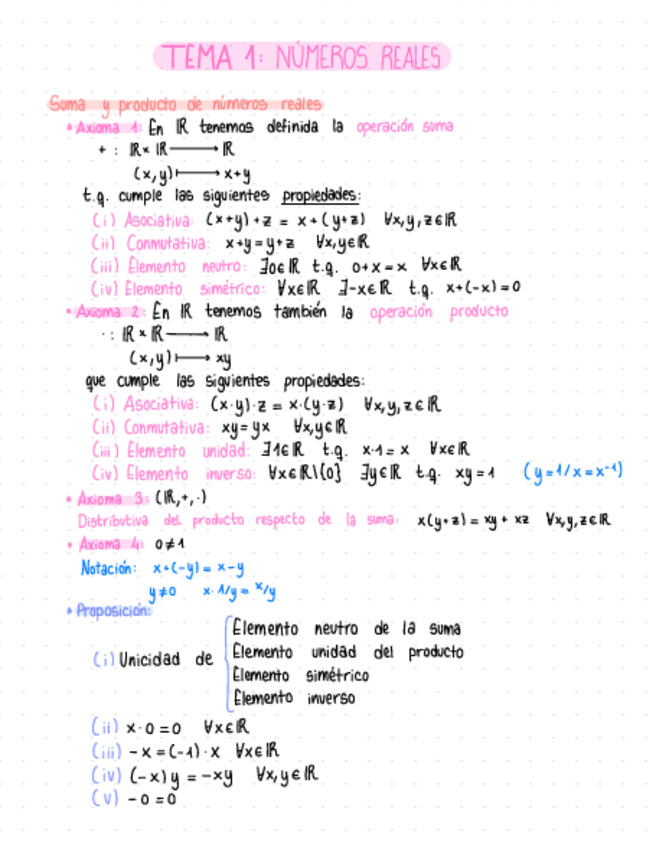 TEMA 1: NÚMEROS REALES
Suma y producto de números reales
• Axioma 1: En ℝ tenemos definida la operación suma
+ : ℝ × ℝ ⟶ ℝ
(x,y) ⟼ x+y
t.q. cumple las siguientes propiedades:
(i) Asociativa: (x+y)+z = x+(y+z) ∀x,y,z∈ℝ
(ii) Conmutativa: x+y=y+z ∀x,y∈ℝ
(iii) Elemento neutro: ∃0∈ℝ t.q. 0+x=x ∀x∈ℝ
(iv) Elemento simétrico: ∀x∈ℝ ∃-x∈ℝ t.q. x+(-x)=0
• Axioma 2: En ℝ tenemos también la operación producto
· : ℝ × ℝ ⟶ ℝ
(x,y) ⟼ xy
que cumple las siguientes propiedades:
(i) Asociativa: (x·y)·z = x·(y·z) ∀x,y,z∈ℝ
(ii) Conmutativa: xy=yx ∀x,y∈ℝ
(iii) Elemento unidad: ∃1∈ℝ t.q. x·1=x ∀x∈ℝ
(iv) Elemento inverso: ∀x∈ℝ\{0} ∃y∈ℝ t.q. xy=1 (y=1/x=x⁻¹)
• Axioma 3: (ℝ,+,·)
Distributiva del producto respecto de la suma: x(y+z)=xy+xz ∀x,y,z∈ℝ
• Axioma 4: 0≠1
Notación: x+(-y)=x-y
y≠0 x·1/y=x/y
• Proposición:
(i) Unicidad de
Elemento neutro de la suma
Elemento unidad del producto
Elemento simétrico
Elemento inverso
(ii) x·0=0 ∀x∈ℝ
(iii) -x=(-1)·x ∀x∈ℝ
(iv) (-x)y=-xy ∀x,y∈ℝ
(v) -0=0